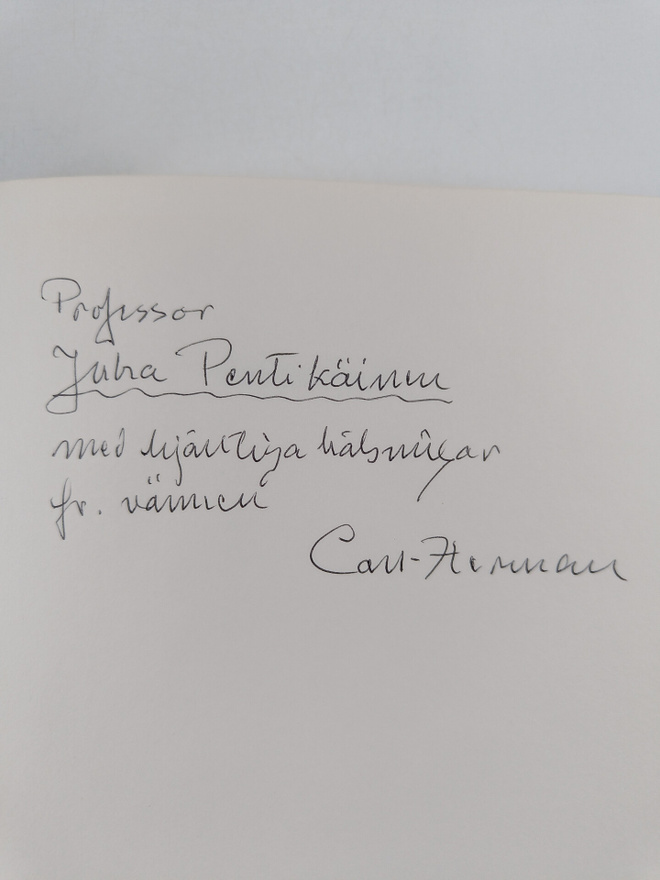 Professor
Juha Pentikäinen
med hjärtliga hälsningar
fr. vännen
Carl-Herman